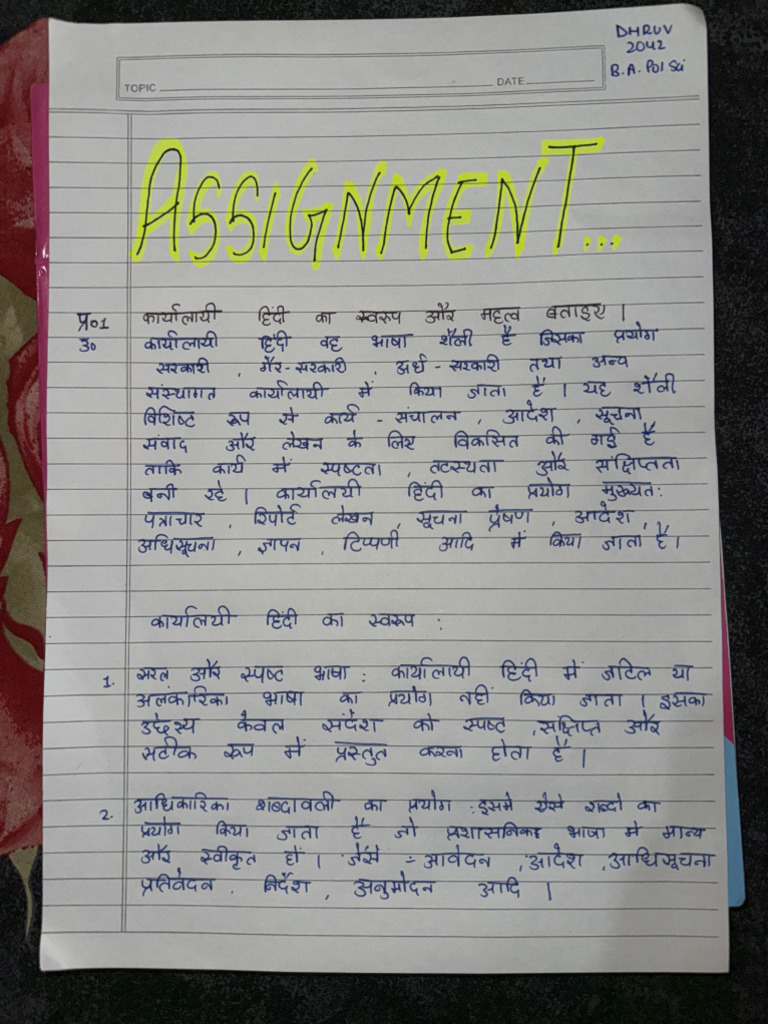 DHRUV
2042
B.A. Pol Sci
TOPIC
DATE
ASSIGNMENT...
प्र०1 कार्यालायी हिंदी का स्वरुप और महत्व बताइए |
उ० कार्यालायी हिंदी वह भाषा शैली है जिसका प्रयोग
सरकारी , गैर-सरकारी , अर्ध-सरकारी तथा अन्य
संस्थागत कार्यालायी में किया जाता है | यह शैली
विशिष्ट रूप से कार्य - संचालन , आदेश , सूचना
संवाद और लेखन के लिए विकसित की गई है
ताकि कार्य में स्पष्टता , तटस्थता और संक्षिप्तता
बनी रहे | कार्यालयी हिंदी का प्रयोग मुख्यत:
पत्राचार , रिपोर्ट लेखन , सूचना प्रेषण , आदेश ,
अधिसूचना , ज्ञापन , टिप्पणी आदि में किया जाता है |
कार्यालयी हिंदी का स्वरुप :
1. सरल और स्पष्ट भाषा : कार्यालायी हिंदी में जटिल या
अलंकारिका भाषा का प्रयोग नहीं किया जाता | इसका
उद्देश्य केवल संदेश को स्पष्ट , संक्षिप्त और
सटीक रूप में प्रस्तुत करना होता है |
2. आधिकारिका शब्दावली का प्रयोग : इसमे ऐसे शब्दो का
प्रयोग किया जाता है जो प्रशासनिक भाषा मे मान्य
और स्वीकृत हो | जैसे - आवेदन , आदेश , आधिसूचना
प्रतिवेदन , निर्देश , अनुमोदन आदि |